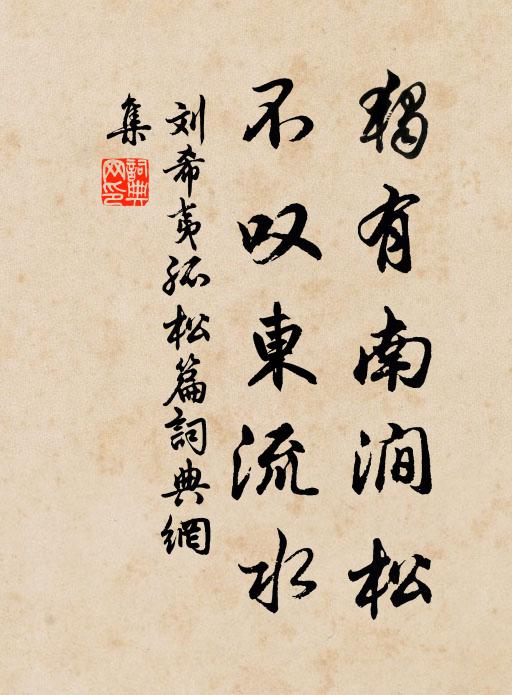 獨有南澗松
不叹東流水
刘希夷孤松篇詞典網
集
詞典網印